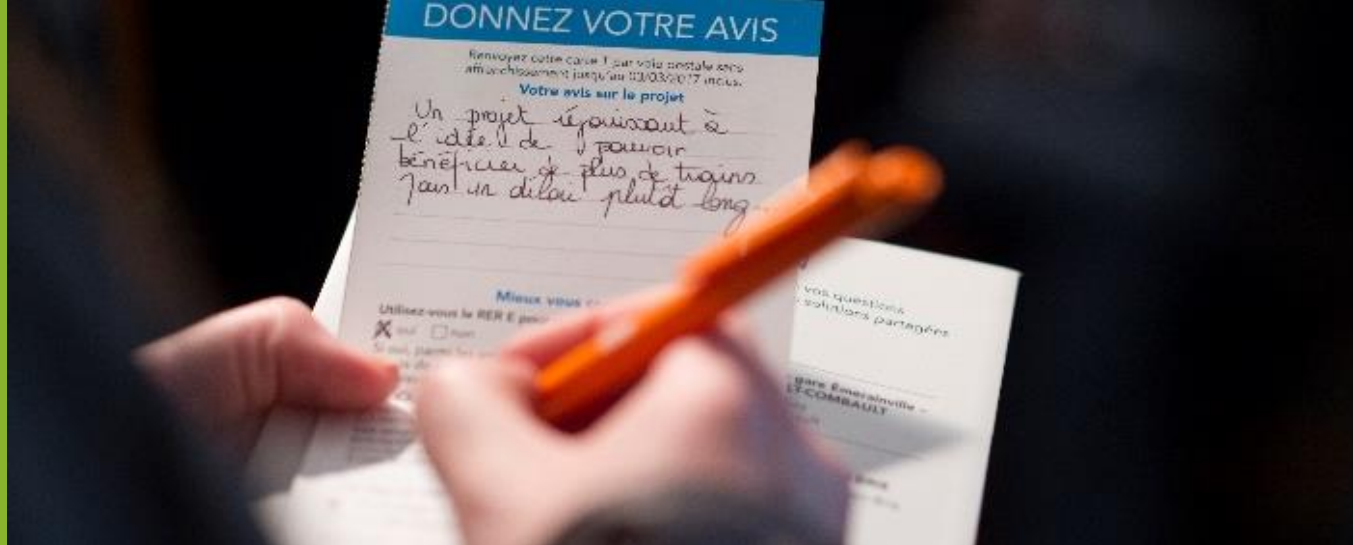 DONNEZ VOTRE AVIS
Renvoyez cette carte T par voie postale sans
affranchissement jusqu'au 03/03/2017 inclus.
Votre avis sur le projet
Un projet réjouissant à
l'idée de pouvoir
bénéficier de plus de trains
dans un délai plutôt long
Mieux vous
Utilisez-vous le RER E pour
oui non
Si oui, parmi les
vos questions
solutions partagées
gare Émerainville –
LT-COMBAULT